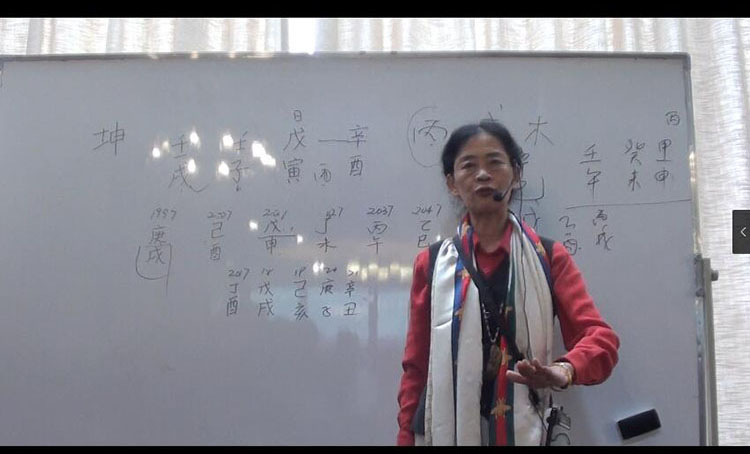 日
坤 壬 壬 戊 辛
戌 子 寅 丙 酉
丙 木
丙
壬 癸 甲
午 未 申
丙
戌
1997 2007 2037 2047
庚 己 戊 丁 丙 乙
戌 酉 申 未 午 巳
2017 18 19 20 21
丁 戊 己 庚 辛
酉 戌 亥 子 丑